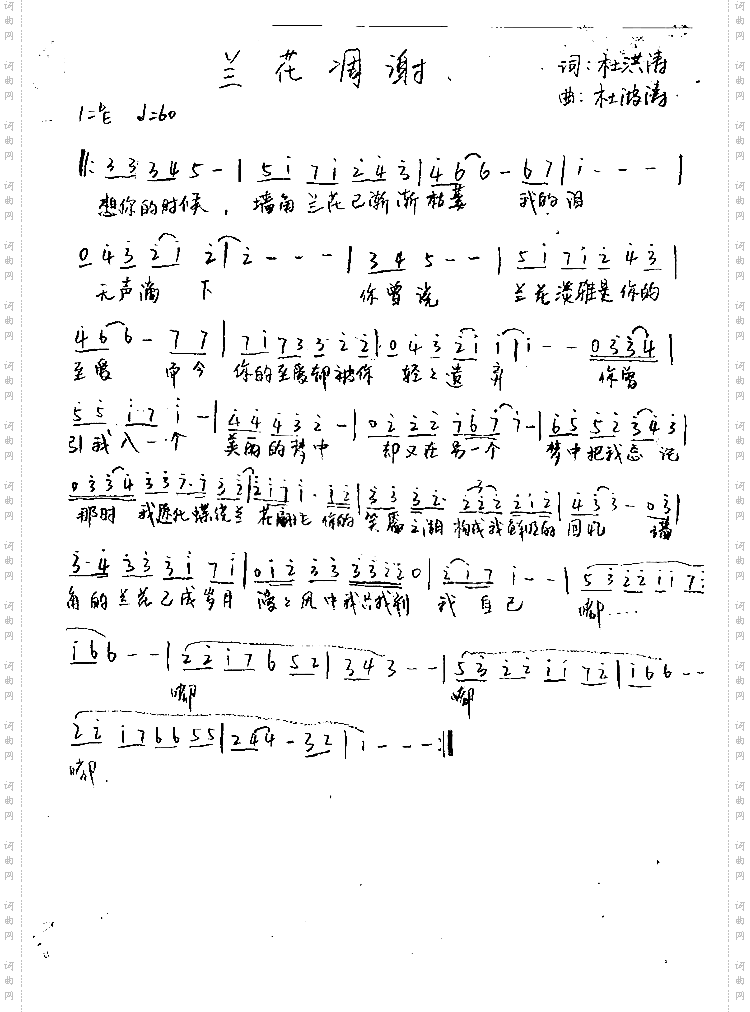 兰花凋谢
词:杜洪涛
曲:杜鸿涛
1=ᵇE ♩=60
‖: 3 3 3 4 5 - | 5 i 7 i 2 4 3 | 4 6 6 - 6 7 | i - - - |
想你的时候, 墙角兰花已渐渐枯萎 我的泪
0 4 3 2 i 2 | 2 - - - | 3 4 5 - - | 5 i 7 i 2 4 3 |
无声滴下 你曾说 兰花淡雅是你的
4 6 6 - 7 7 | 7 i 7 3 3 · 2 2 | 0 4 3 2 i i | i - - 0 3 3 4 |
至爱 而今 你的至爱却被你 轻轻遗弃 你曾
5 5 i · 7 i - | 4 4 4 3 2 - | 0 2 2 2 7 6 7 7 - | 6 5 5 2 3 4 3 |
引我入一个 美丽的梦中 却又在另一个 梦中把我忘记
0 3 3 4 3 3 7 · 7 3 2 | 2 i 7 i · i 2 | 3 3 3 2 · 2 2 2 2 i 2 | 4 3 3 - 0 3 |
那时 我愿化蝶绕兰花翩飞 你的笑 构成我 的回忆 墙
3 · 4 3 3 3 i 7 i | 0 i 2 3 3 3 3 2 2 0 | 2 i 7 i - - | 5 3 2 2 i i 7 2
角的兰花已成岁月 风中我只我剩 我自己 啷....
i 6 6 - - | 2 2 i 7 6 5 2 | 3 4 3 - - | 5 3 2 2 i i 7 2 | i 6 6 - -
啷 啷
2 2 i 7 6 6 5 5 | 2 4 4 - 3 2 | i - - - :‖
啷.
词曲网